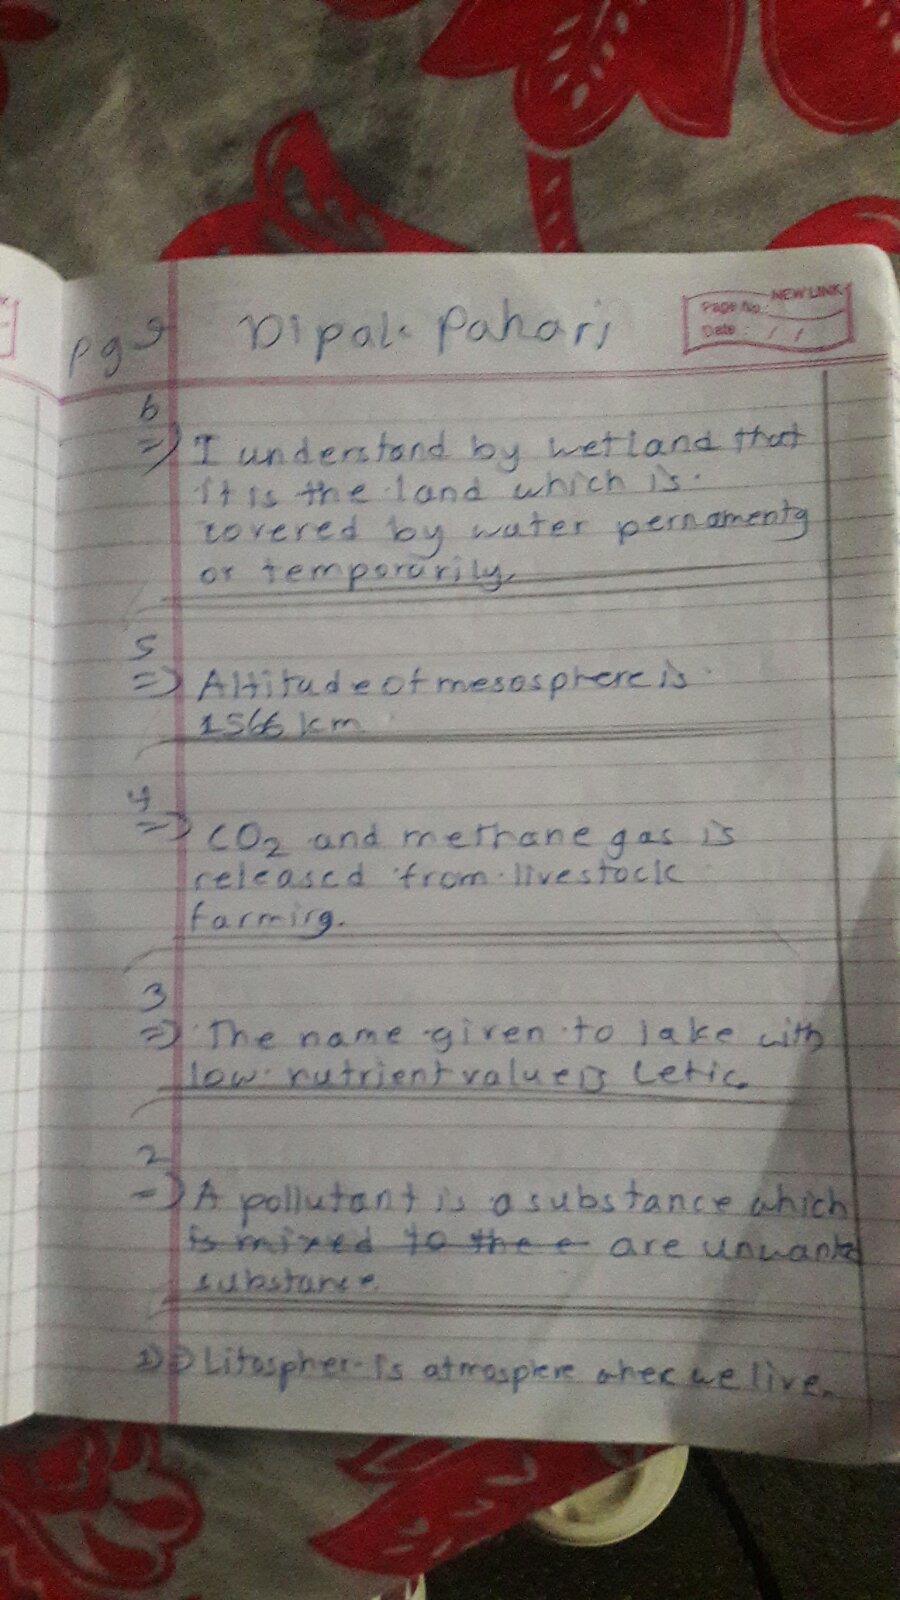 NEW LINK
Page No.:
Date : / /
Dipak Pahari
6
=> I understand by wetland that
it is the land which is
covered by water pernamenty
or temporarily.
5
=> Altitude of mesosphere is
km
4
=> CO2 and methane gas is
released from livestock
farming.
3
=> The name given to lake with
low nutrient value is Letic.
2
=> A pollutant is a substance which
is mixed to the e are unwanted
substance.
1) => Litospher is atmosphere wher we live.